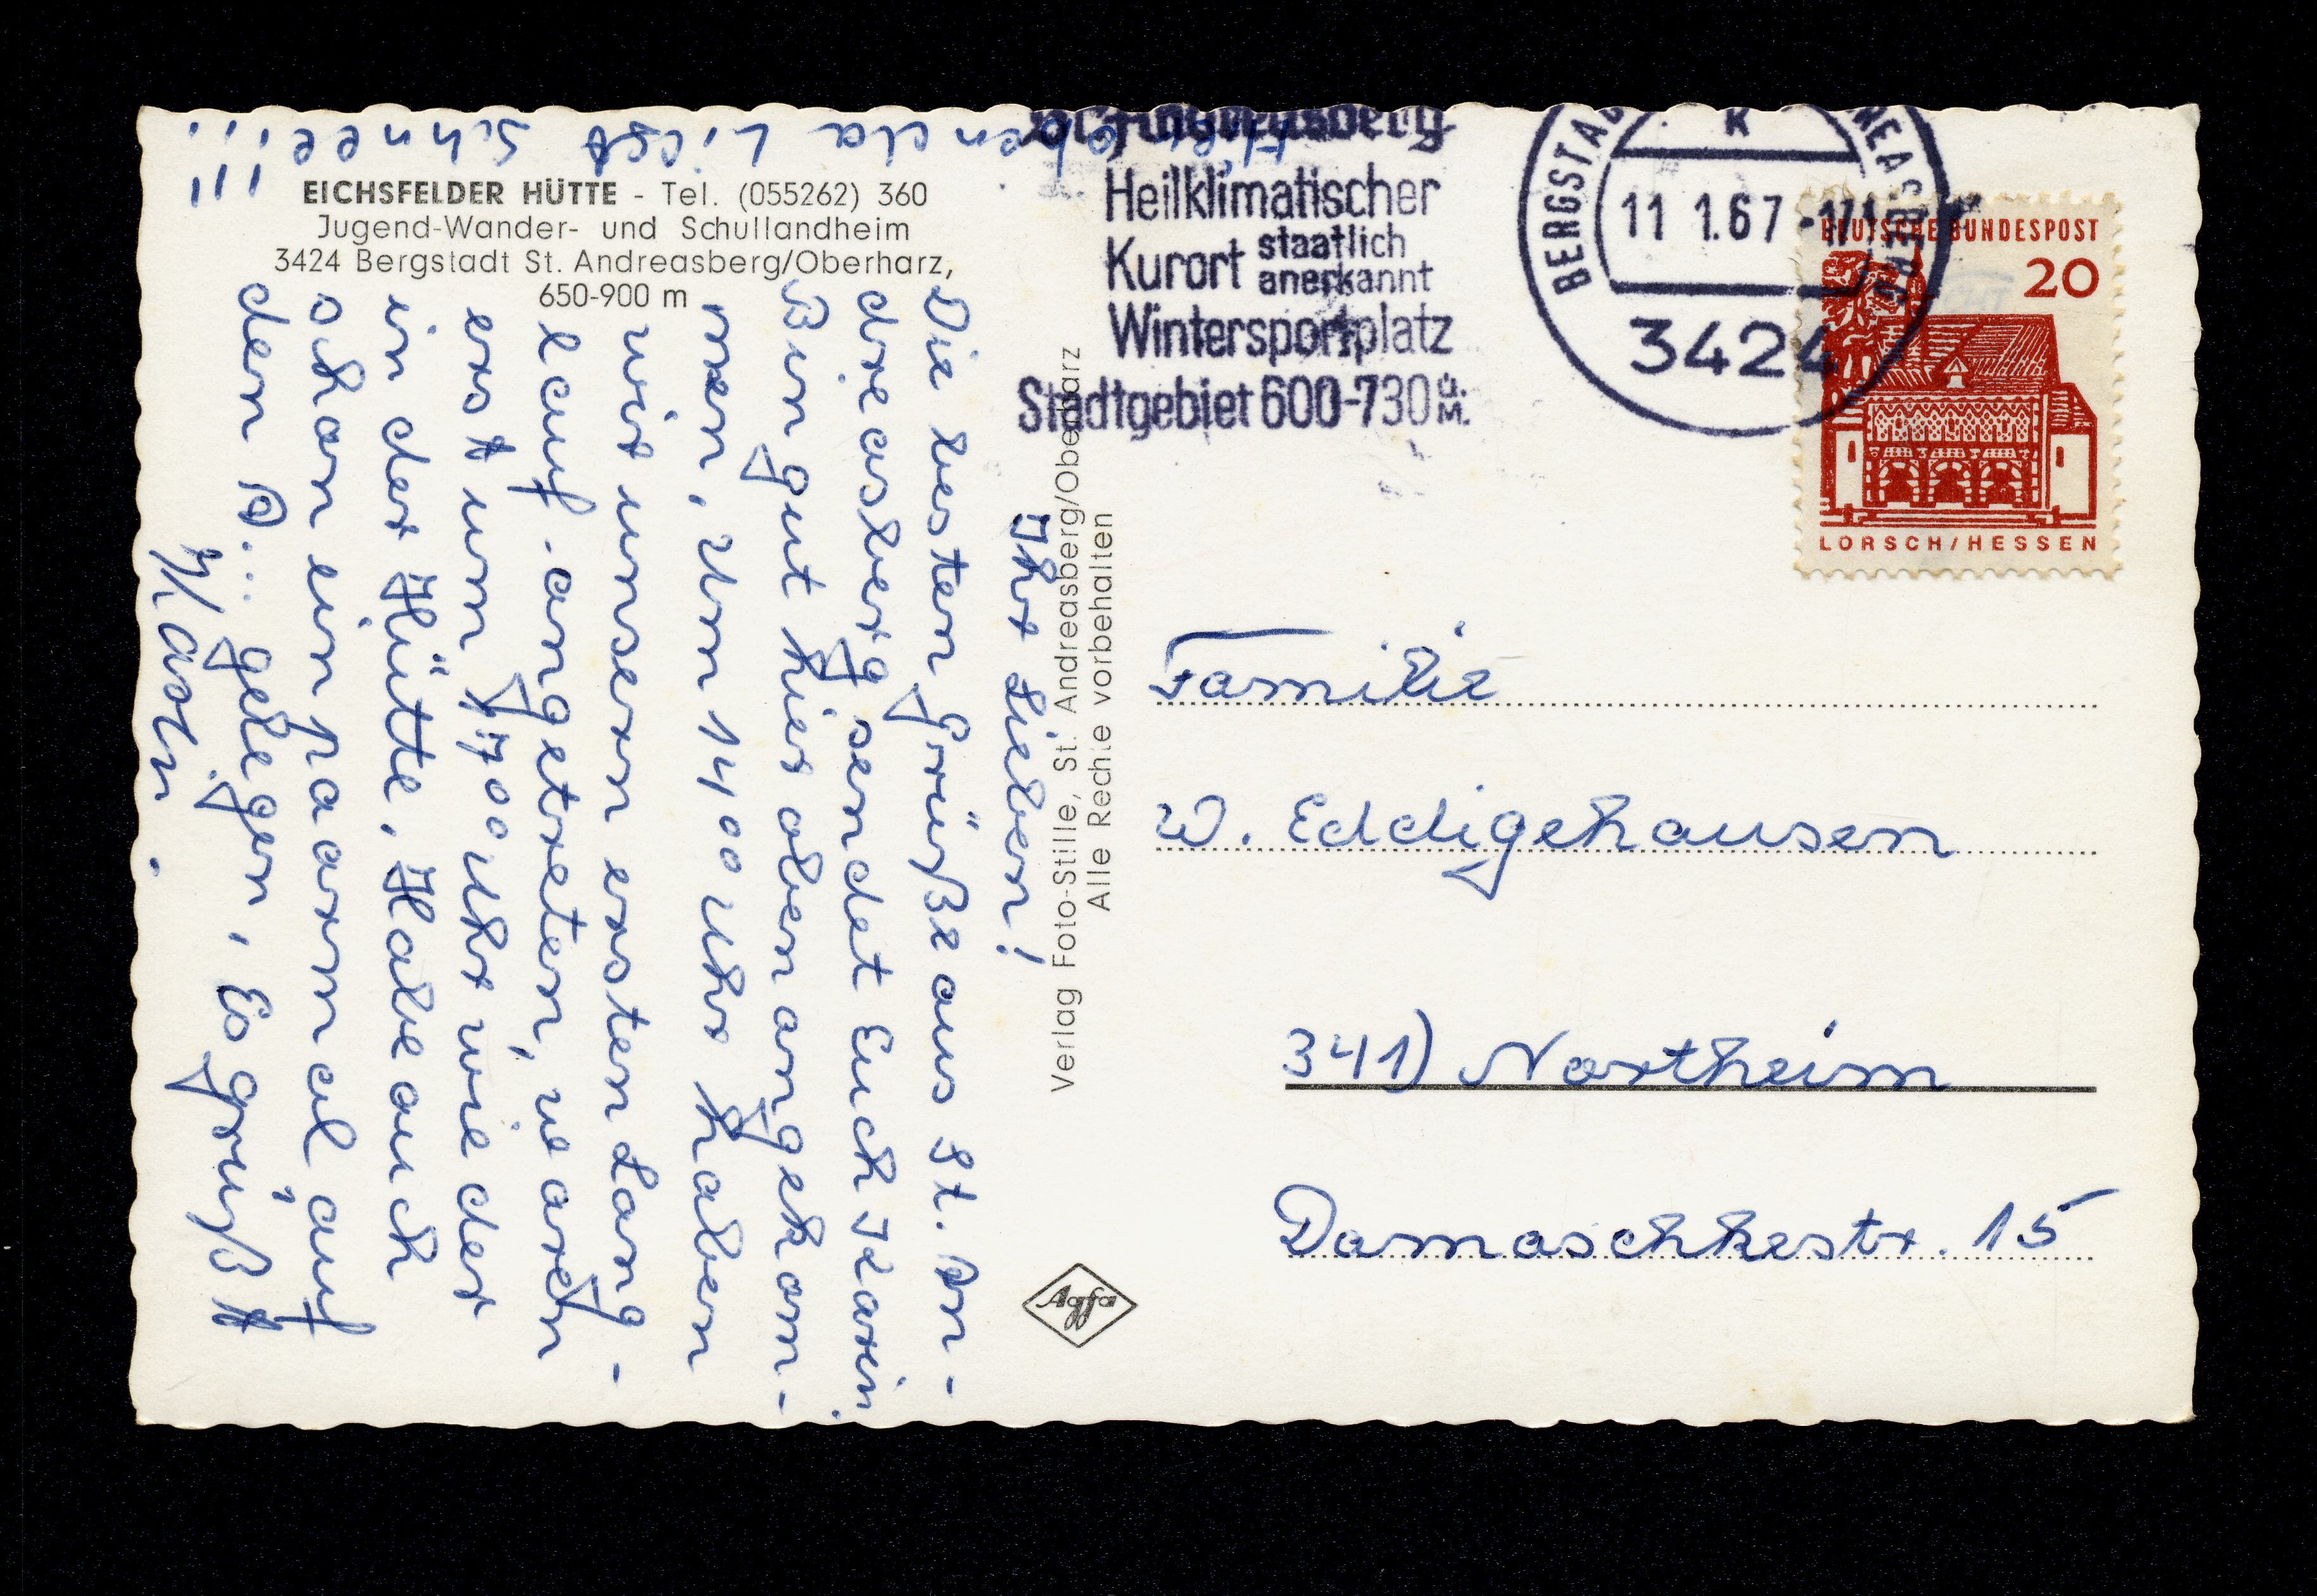 EICHSFELDER HÜTTE - Tel. (055262) 360
Jugend-Wander- und Schullandheim
3424 Bergstadt St. Andreasberg/Oberharz,
650-900 m
Ihr Lieben!
Die besten Grüße aus St. An-
dreasberg sendet Euch Karin.
Bin gut hier oben angekom-
men, Um 14 00 Uhr haben
wir unseren ersten Lang-
lauf angetreten, waren
erst um 17 00 Uhr wieder
in der Hütte, Habe auch
schon ein paarmal auf
den A... gelegen, Es grüßt
Karin.
oben da liegt Schnee!!!
!!!
Verlag Foto-Stille, St. Andreasberg/Oberharz
Alle Rechte vorbehalten
Agfa
St. Andreasberg
Heilklimatischer
Kurort staatlich anerkannt
Wintersportplatz
Stadtgebiet 600-730 ü. M.
BERGSTADT ST ANDREASBERG
11 1.67
3424
DEUTSCHE BUNDESPOST
20
LORSCH/HESSEN
Familie
W. Eddigehausen
341) Northeim
Damaschkestr. 15